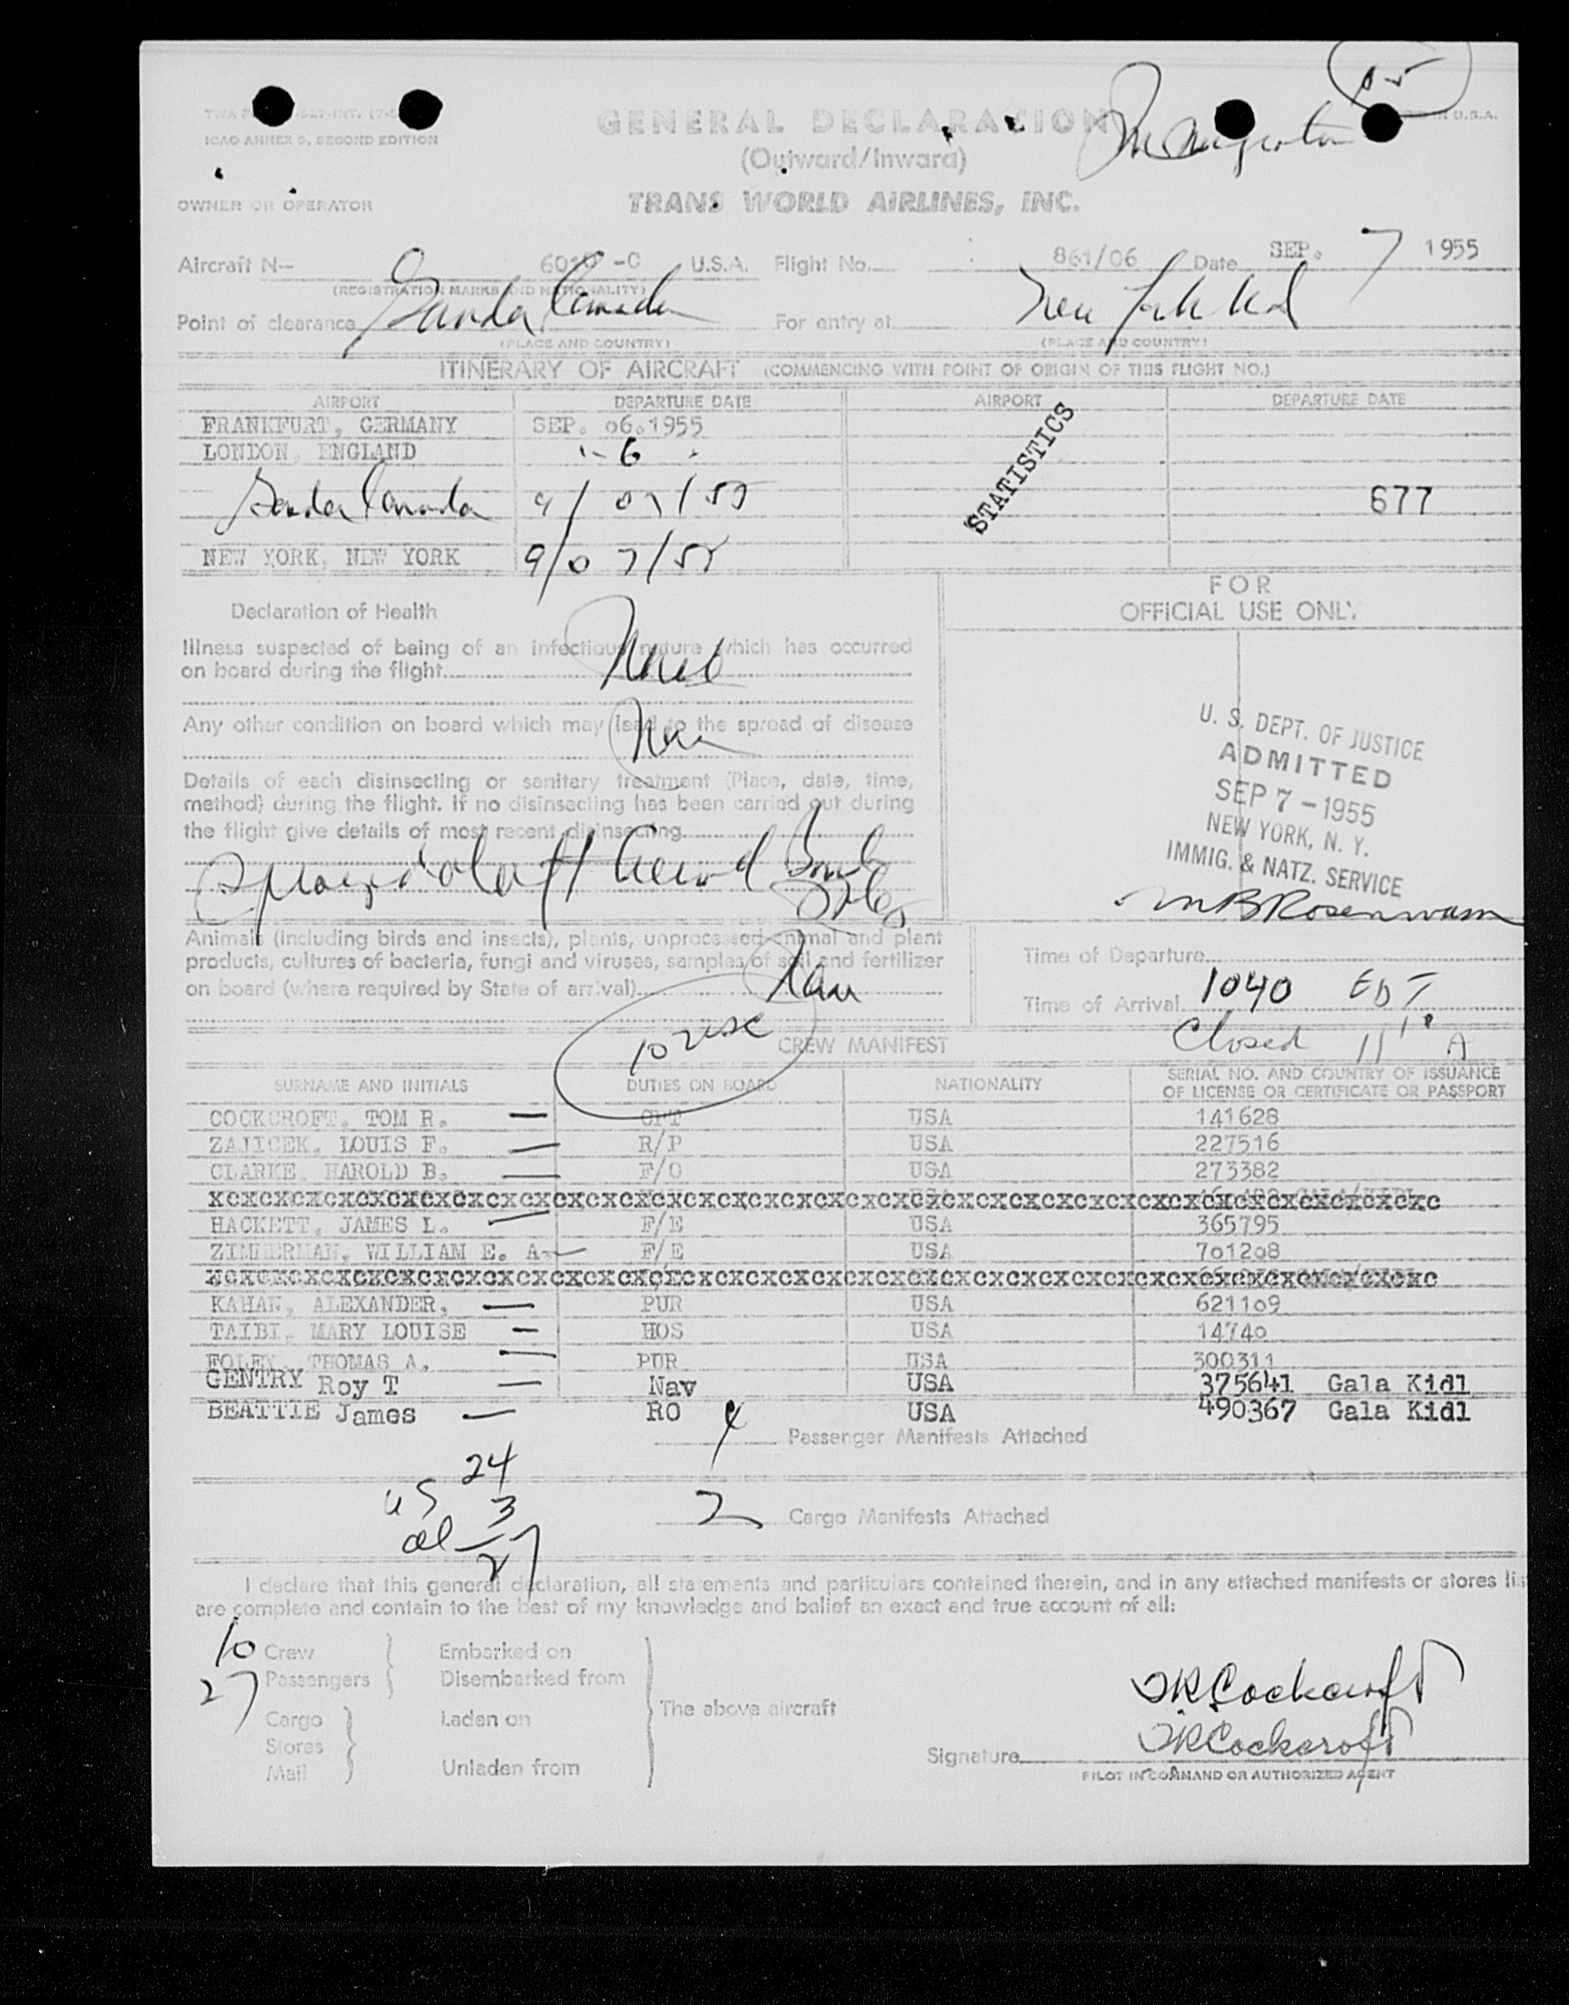 05
GENERAL DECLARATION
Immigration
ICAO ANNEX 9, SECOND EDITION
(Outward/Inward)
OWNER OR OPERATOR
TRANS WORLD AIRLINES, INC.
Aircraft N- -C U.S.A. Flight No. 861/06 Date SEP. 7 1955
(REGISTRATION MARKS AND NATIONALITY)
Point of clearance Gander Canada For entry at New York
(PLACE AND COUNTRY) (PLACE AND COUNTRY)
ITINERARY OF AIRCRAFT (COMMENCING WITH POINT OF ORIGIN OF THIS FLIGHT NO.)
AIRPORT DEPARTURE DATE AIRPORT DEPARTURE DATE
FRANKFURT, GERMANY SEP. 06.1955
LONDON, ENGLAND 6
STATISTICS
Gander Canada 9/07/55 677
NEW YORK, NEW YORK 9/07/55
FOR
OFFICIAL USE ONLY
Declaration of Health
Illness suspected of being of an infectious nature which has occurred
on board during the flight None
Any other condition on board which may lead to the spread of disease
None
Details of each disinsecting or sanitary treatment (Place, date, time,
method) during the flight. If no disinsecting has been carried out during
the flight give details of most recent disinsecting
Sprayed aloft Aerosol Bomb
U. S. DEPT. OF JUSTICE
ADMITTED
SEP 7 - 1955
NEW YORK, N. Y.
IMMIG. & NATZ. SERVICE
Animals (including birds and insects), plants, unprocessed animal and plant
products, cultures of bacteria, fungi and viruses, samples of soil and fertilizer
on board (where required by State of arrival) None
Time of Departure
Time of Arrival 1040 EDT
Closed 11 10 A
10 usc
CREW MANIFEST
SURNAME AND INITIALS DUTIES ON BOARD NATIONALITY SERIAL NO. AND COUNTRY OF ISSUANCE
OF LICENSE OR CERTIFICATE OR PASSPORT
COCKCROFT, TOM R. CPT USA 141628
ZAJICEK, LOUIS F. R/P USA 227516
CLARKE, HAROLD B. F/O USA 273382
HACKETT, JAMES L. F/E USA 365795
ZIMMERMAN, WILLIAM E. A. F/E USA 701208
KAHAN, ALEXANDER, PUR USA 621109
TAIBI, MARY LOUISE HOS USA 14740
FOLEY, THOMAS A. PUR USA 300311
GENTRY Roy T Nav USA 375641 Gala Kidl
BEATTIE James RO USA 490367 Gala Kidl
4 Passenger Manifests Attached
US 24
al 3
27
2 Cargo Manifests Attached
I declare that this general declaration, all statements and particulars contained therein, and in any attached manifests or stores lis
are complete and contain to the best of my knowledge and belief an exact and true account of all:
10 Crew Embarked on
27 Passengers Disembarked from
The above aircraft
Cargo Laden on
Stores
Mail Unladen from
TRCockcroft
TRCockcroft
Signature
PILOT IN COMMAND OR AUTHORIZED AGENT